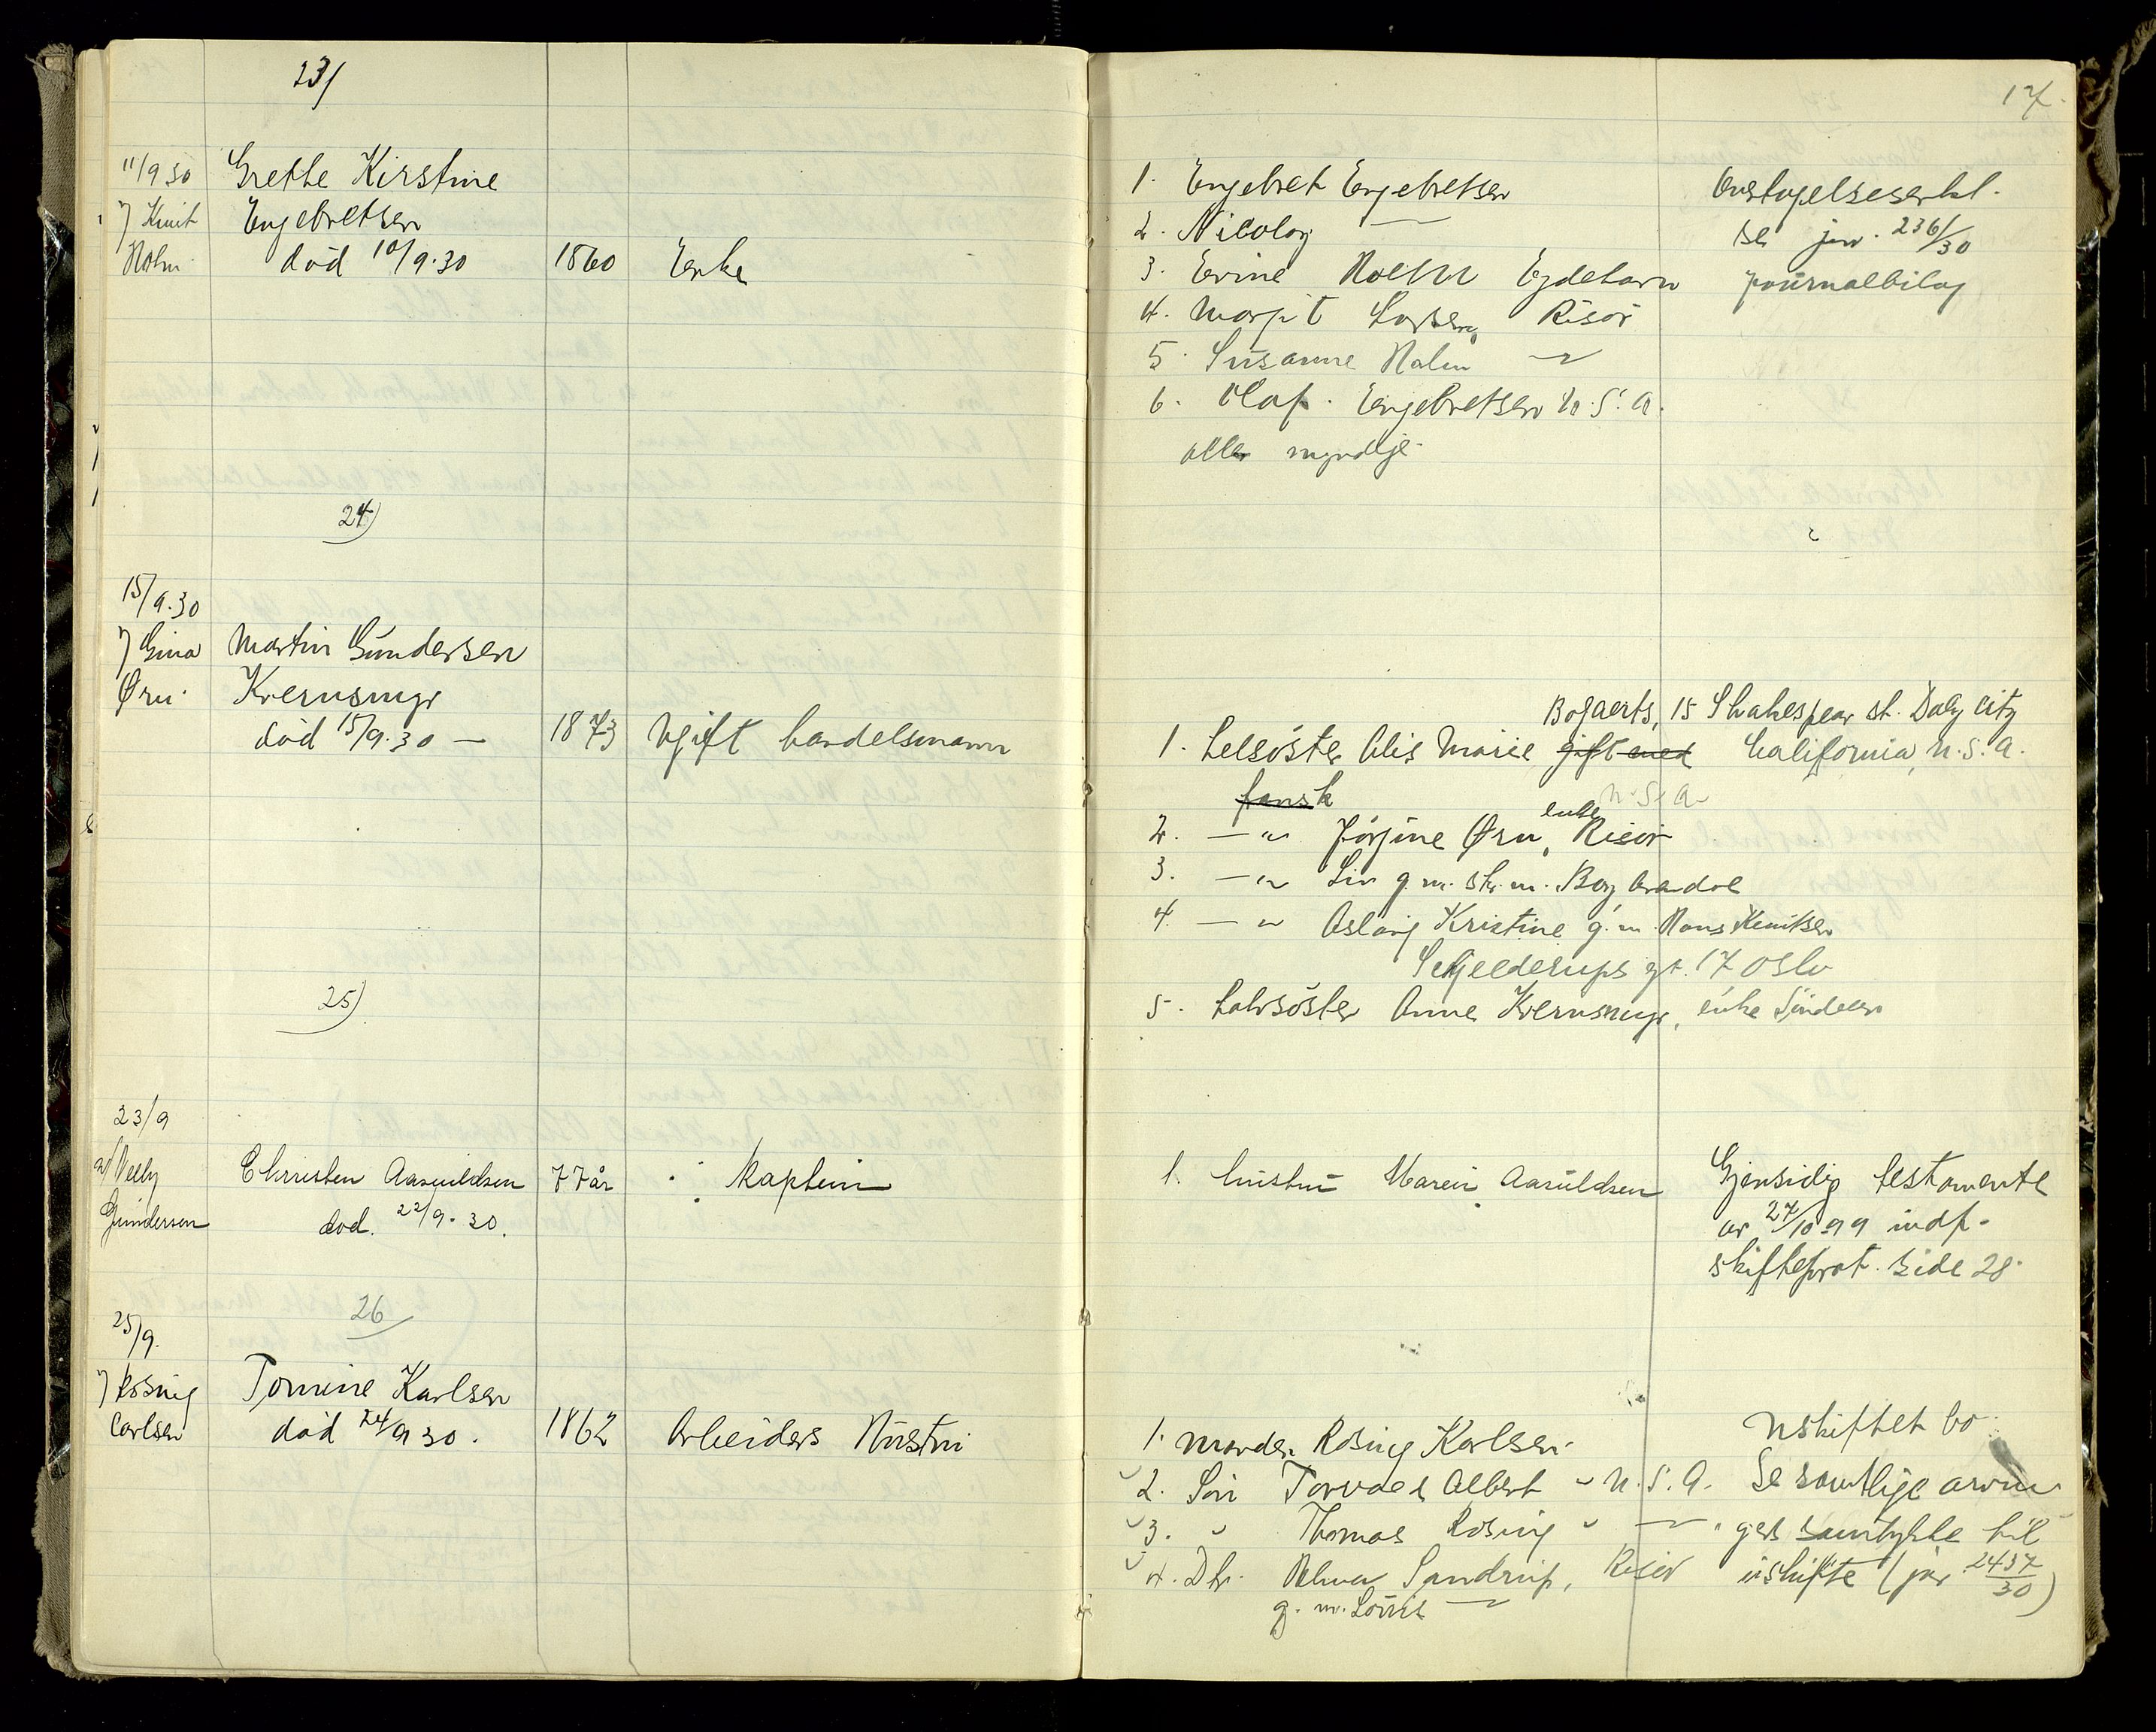 23/
11/9 30 Grethe Kirstine
v/ Knut Engebretsen
Holm død 10/9.30 1860 Enke
24)
15/9.30
v/ Gina Martin Gundersen
Øru. Kvernsmyr
død 15/9.30 — 1873 Ugift handelsmann
25)
23/9
a/ Nelly Christen Aanuldsen 77 år Kaptein
Gundersen død. 22/9.30.
26
25/9.
v/ Rosing Tomine Karlsen
Carlsen død 24/9 30. 1862 Arbeiders Hustru
17.
1. Engebret Engebretsen Overtagelseserkl.
2. Nicolay — se jnr. 236/30
3. Evine Holm Eydehavn journalbilag
4. Margit Larsen, Risør
5. Susanne Holm —"—
6. Olaf Engebretsen U.S.A.
alle myndige
Bogaerts, 15 Shakespear st. Daly City
1. Helsøster Alis Marie gift med California, U.S.A.
fansk U.S.A
enke
2. —"— Jørgine Øru, Risør
3. —"— Liv g.m. sk.m. Berg Arendal
4. —"— Aslaug Kristine g.m. Hans Knutsen
Schjelderups gt. 17 Oslo
5. Halvsøster Anne Kvernsmyr, enke Søndeled
1. Hustru Maren Aanuldsen Gjensidig testamente
av 27/10 99 indf.
skifteprot. side 28.
1. Mannen Rosing Karlsen. Uskiftet bo.
2. Søn Torvald Albert - U.S.A. Se samtlige arvin-
3. " Thomas Rosing " —"— gers samtykke til
4. Dtr. Helma Sandrup, Risør uskifte (jnr. 2437/30)
g. m. Louis —"—